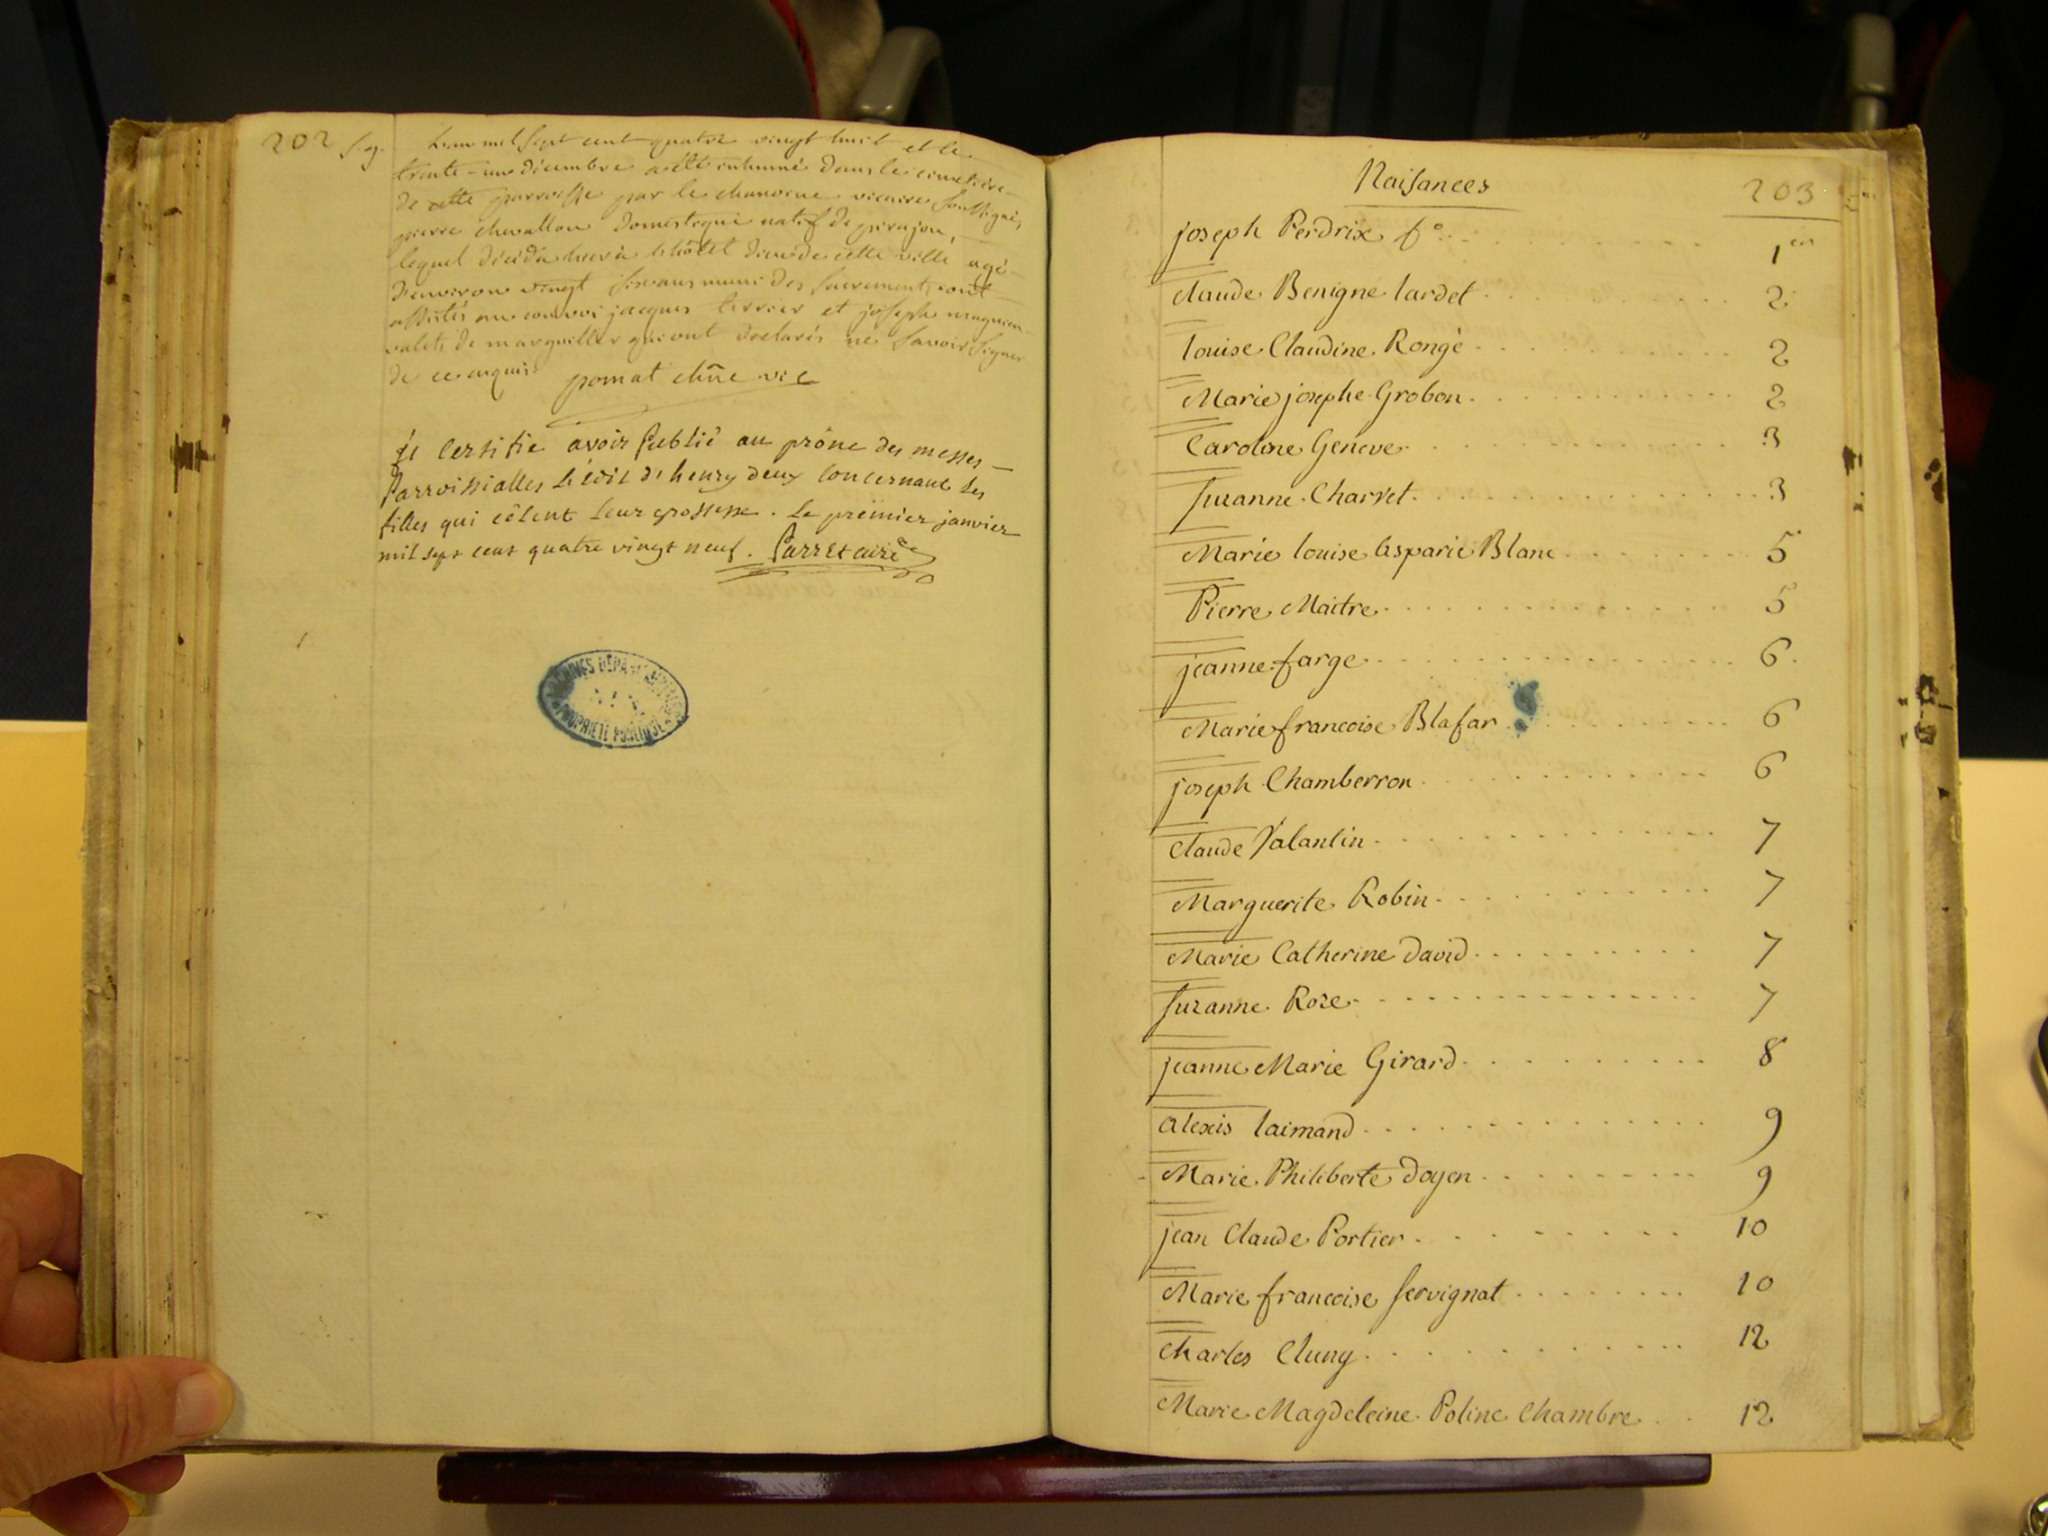 202
L'an mil sept cent quatre vingt huit et le
trente-un décembre a été inhumé dans le cimetière
de cette parroisse par le chanoine vicaire soussigné,
pierre chevallon Domestique natif de pirajou,
lequel décéda hier à l'hôtel Dieu de cette ville agé
d'environ vingt six ans muni des sacrements, ont
assistés au convoi jacques terrier et joseph
valets de marguiller qui ont déclarés ne savoir signer
de ce enquis pomat chne vic
je certifie avoir publié au prône des messes
Parroissialles l'édit de henry deux concernant les
filles qui cêlent leur grossesse. le premier janvier
mil sept cent quatre vingt neuf. curé
ARCHIVES DÉPARTEMENTALES
PROPRIÉTÉ PUBLIQUE
Naisances
203
joseph Perdrix fo 1er
Claude Benigne lardet 2
louise Claudine Rongé 2
Marie josephe Grobon 2
Caroline Geneve 3
Suzanne Charvet 3
Marie louise Gasparie Blanc 5
Pierre Maitre 5
jeanne farge 6
Marie francoise Blafar 6
joseph Chamberron 6
Claude Valantin 7
Marguerite Robin 7
Marie Catherine David 7
Suzanne Roze 7
jeanne Marie Girard 8
Alexis laimand 9
Marie Philiberte Doyen 9
jean Claude Portier 10
Marie francoise Servignat 10
Charles Cluny 12
Marie Magdeleine Poline Chambre 12